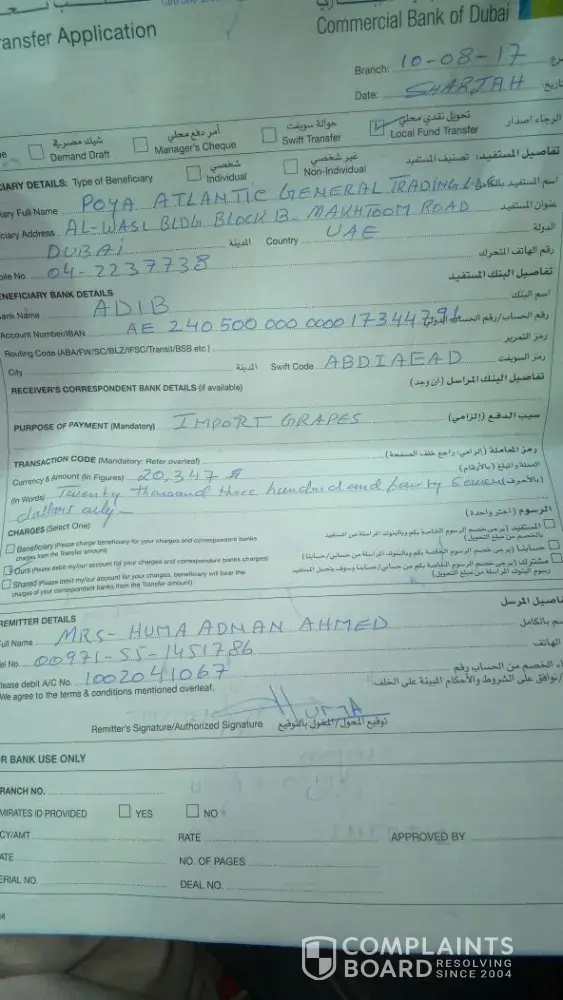 Commercial Bank of Dubai
ansfer Application
Branch: 10-08-17
Date: SHARJAH التاريخ:
الرجاء اصدار
Demand Draft شيك مصرفي
Manager's Cheque أمر دفع محلي
Swift Transfer حوالة سويفت
Local Fund Transfer تحويل نقدي محلي
CIARY DETAILS: Type of Beneficiary Individual شخصي Non-Individual غير شخصي تفاصيل المستفيد: تصنيف المستفيد
iary Full Name POYA ATLANTIC GENERAL TRADING اسم المستفيد بالكامل
ciary Address AL-WASL BLDG BLOCK B MAKHTOOM ROAD عنوان المستفيد
DUBAI المدينة Country UAE الدولة
ile No. 04-2237738 رقم الهاتف المتحرك
ENEFICIARY BANK DETAILS تفاصيل البنك المستفيد
ank Name ADIB اسم البنك
Account Number/IBAN AE 240 500 000 0000 17344791 رقم الحساب/رقم الحساب الدولي
Routing Code (ABA/FW/SC/BLZ/IFSC/Transit/BSB etc.) رمز التمرير
City المدينة Swift Code ABDIAEAD رمز السويفت
RECEIVER'S CORRESPONDENT BANK DETAILS (if available) تفاصيل البنك المراسل (ان وجد)
PURPOSE OF PAYMENT (Mandatory) IMPORT GRAPES سبب الدفع (إلزامي)
TRANSACTION CODE (Mandatory: Refer overleaf) رمز المعاملة (إلزامي: راجع خلف الصفحة)
Currency & Amount (In Figures) 20,347 $ العملة والمبلغ (بالأرقام)
(In Words) Twenty thousand three hundred and fourty seven (بالأحرف)
dollars only
CHARGES (Select One) الرسوم (اختر واحدة)
Beneficiary (Please charge beneficiary for your charges and correspondent banks المستفيد
charges from the Transfer amount)
Ours (Please debit my/our account for your charges and correspondent banks charges) حسابنا
Shared (Please debit my/our account for your charges, beneficiary will bear the مشترك
charges of your correspondent banks from the Transfer amount)
REMITTER DETAILS تفاصيل المرسل
Full Name MRS- HUMA ADNAN AHMED
el No. 00971-55-1451786 الهاتف
lease debit A/C No. 1002041067
We agree to the terms & conditions mentioned overleaf.
Huma
Remitter's Signature/Authorized Signature
OR BANK USE ONLY
RANCH NO.
MIRATES ID PROVIDED YES NO
CY/AMT RATE APPROVED BY
ATE NO. OF PAGES
ERIAL NO. DEAL NO.
COMPLAINTS
BOARD RESOLVING
SINCE 2004